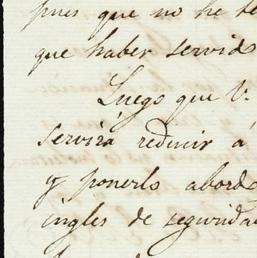 pues que no he te
que haber servido
Luego que V.
servirá reducir á
y ponerlo abordo
ingles de segurida